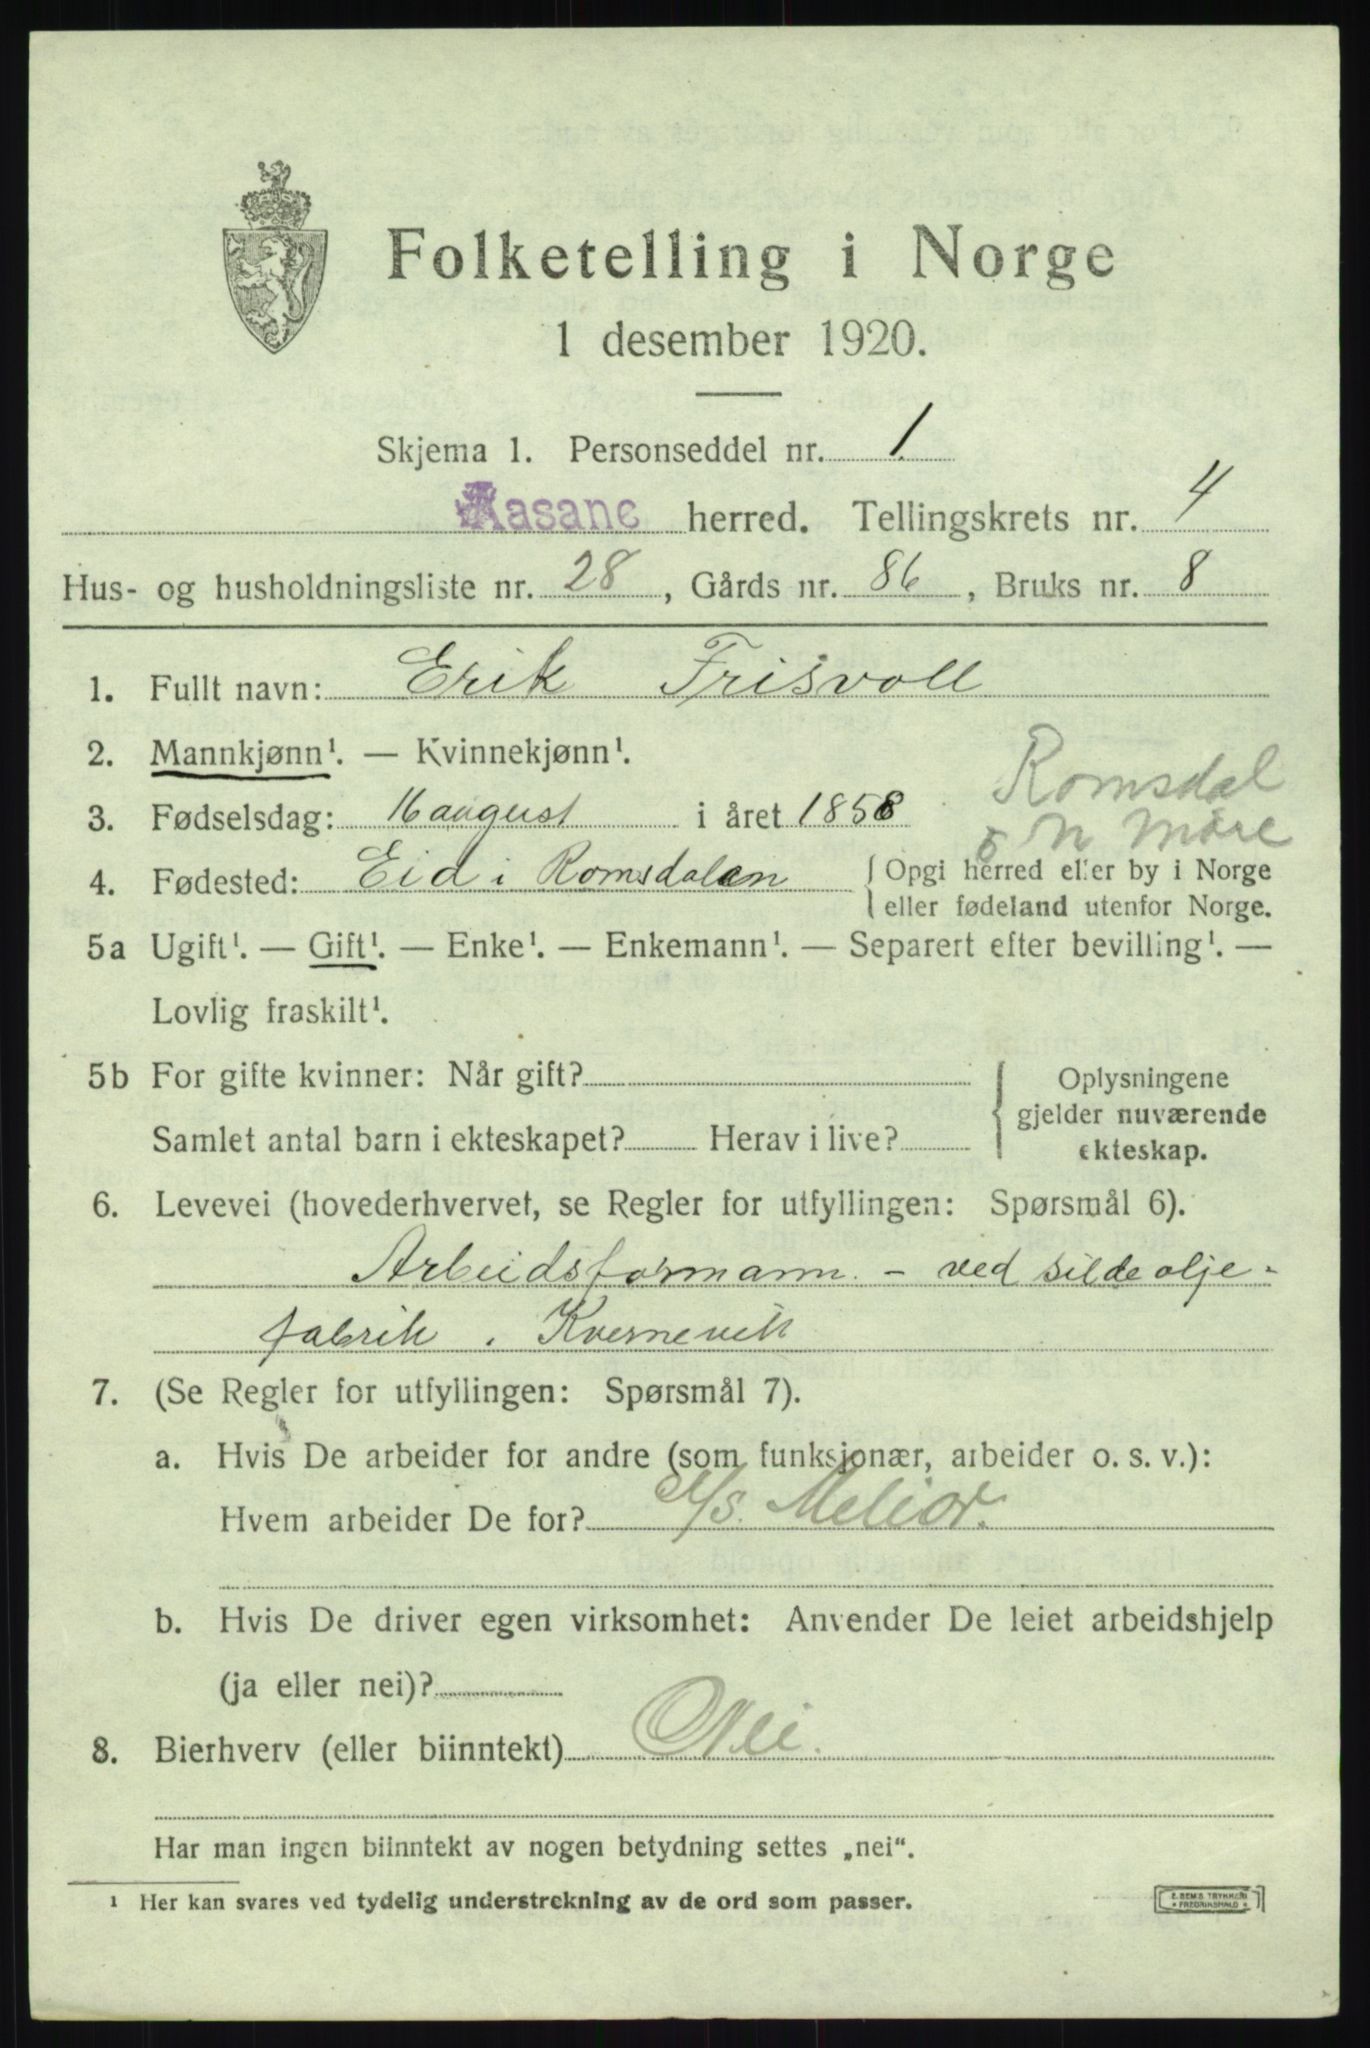 Folketelling i Norge
1 desember 1920.
Skjema 1. Personseddel nr. 1
Aasane herred. Tellingskrets nr. 4
Hus- og husholdningsliste nr. 28, Gårds nr. 86, Bruks nr. 8
1. Fullt navn: Erik Frisvoll
2. Mannkjønn¹. — Kvinnekjønn¹.
Romsdal
3. Fødselsdag: 16 august i året 1858
N Møre
4. Fødested: Eid i Romsdalen { Opgi herred eller by i Norge
eller fødeland utenfor Norge.
5a Ugift¹. — Gift¹. — Enke¹. — Enkemann¹. — Separert efter bevilling¹. —
Lovlig fraskilt¹.
5b For gifte kvinner: Når gift? { Oplysningene
gjelder nuværende
Samlet antal barn i ekteskapet? Herav i live? ekteskap.
6. Levevei (hovederhvervet, se Regler for utfyllingen: Spørsmål 6).
Arbeidsformann - ved silde olje-
fabrik i Kvernevik
7. (Se Regler for utfyllingen: Spørsmål 7).
a. Hvis De arbeider for andre (som funksjonær, arbeider o. s. v.):
Hvem arbeider De for? A/S. Melior.
b. Hvis De driver egen virksomhet: Anvender De leiet arbeidshjelp
(ja eller nei)?
8. Bierhverv (eller biinntekt) Nei.
Har man ingen biinntekt av nogen betydning settes „nei“.
¹ Her kan svares ved tydelig understrekning av de ord som passer.
E. SEMS TRYKKERI
• FREDRIKSHALD •